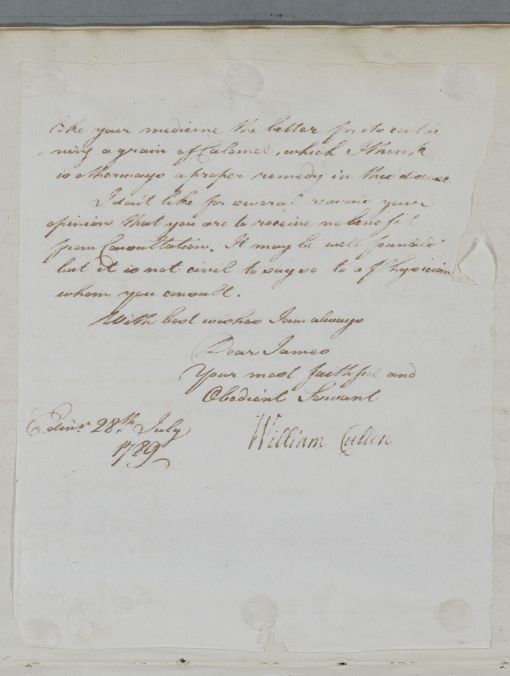 like your medicine the better for its contai
ning a grain of Calomel, which I think
is otherways a proper remedy in this disease
I don't like for several reasons your
opinion that you are to receive no benefit
from Consultation. It may be well founded
but it is not civil to say so to a Physician
whom you consult.
With best wishes I am always
Dear James
Your most faithful and
Obedient Servant
William Cullen
Edinr 28th July
1789